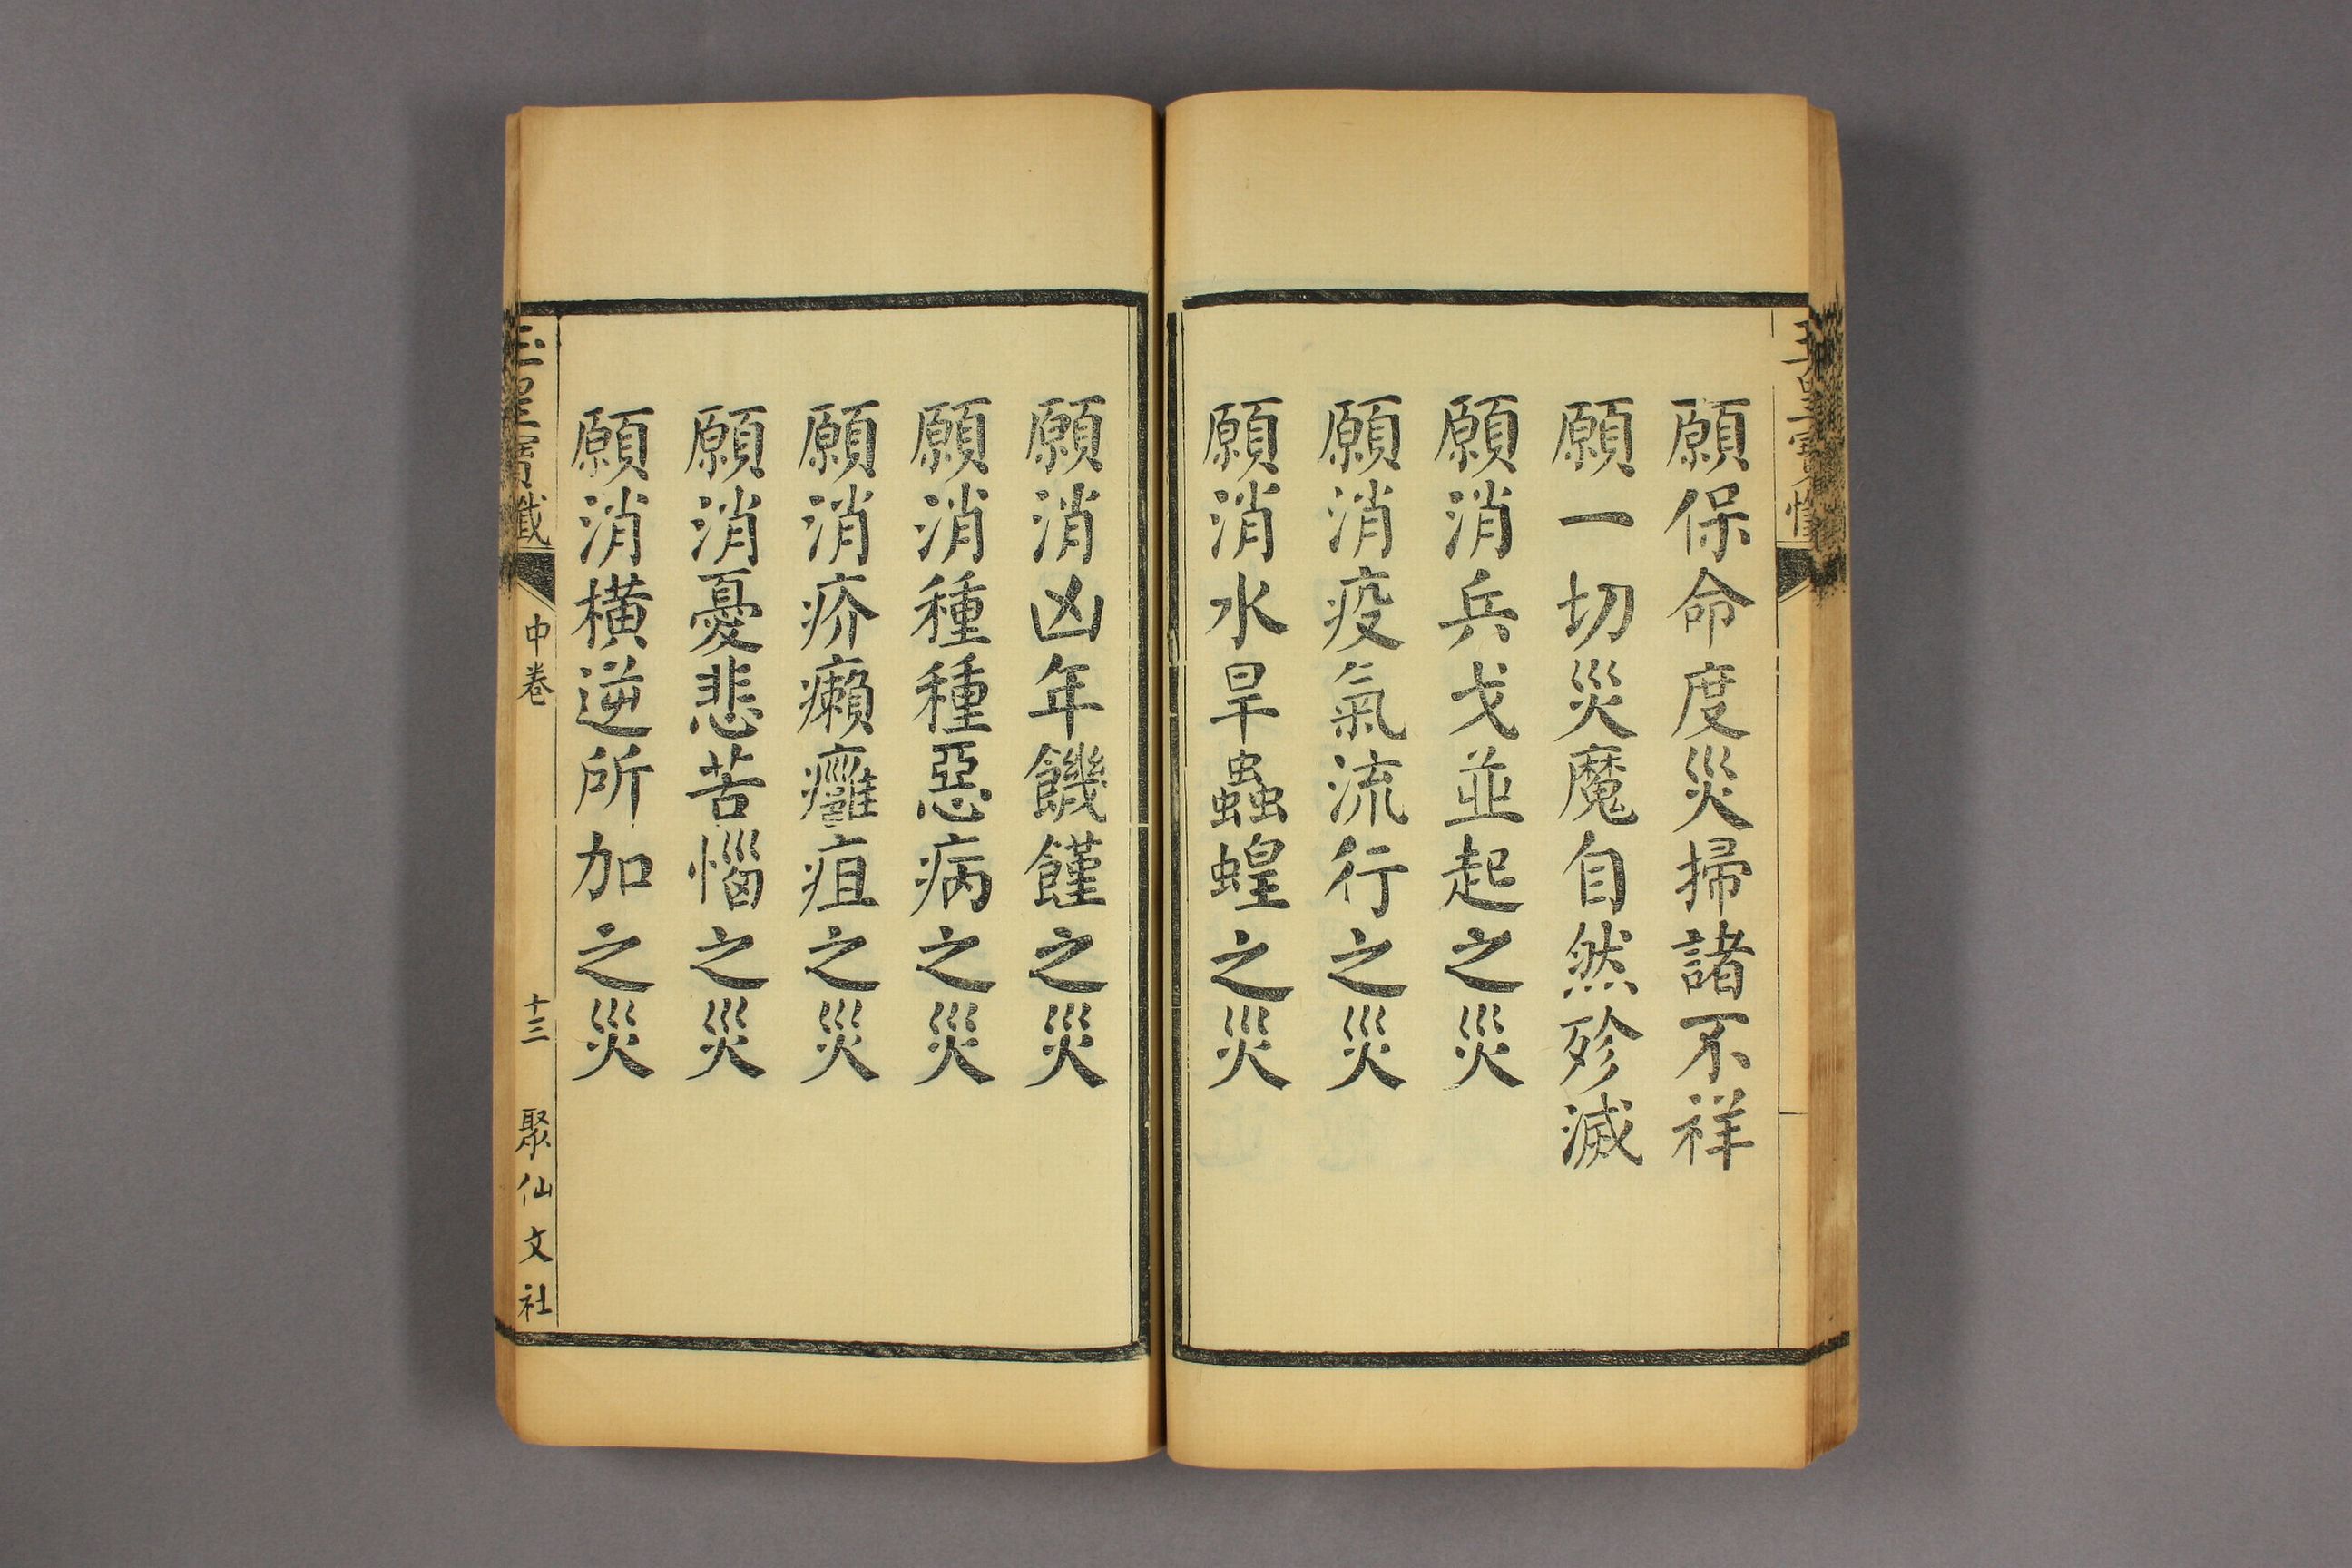 願保命度災掃諸不祥
願一切災魔自然殄滅
願消兵戈並起之災
願消疫氣流行之災
願消水旱蟲蝗之災
願消凶年饑饉之災
願消種種惡病之災
願消疥癩癰疽之災
願消憂悲苦惱之災
願消橫逆所加之災
玉皇寶懺
中卷
十三
聚仙文社